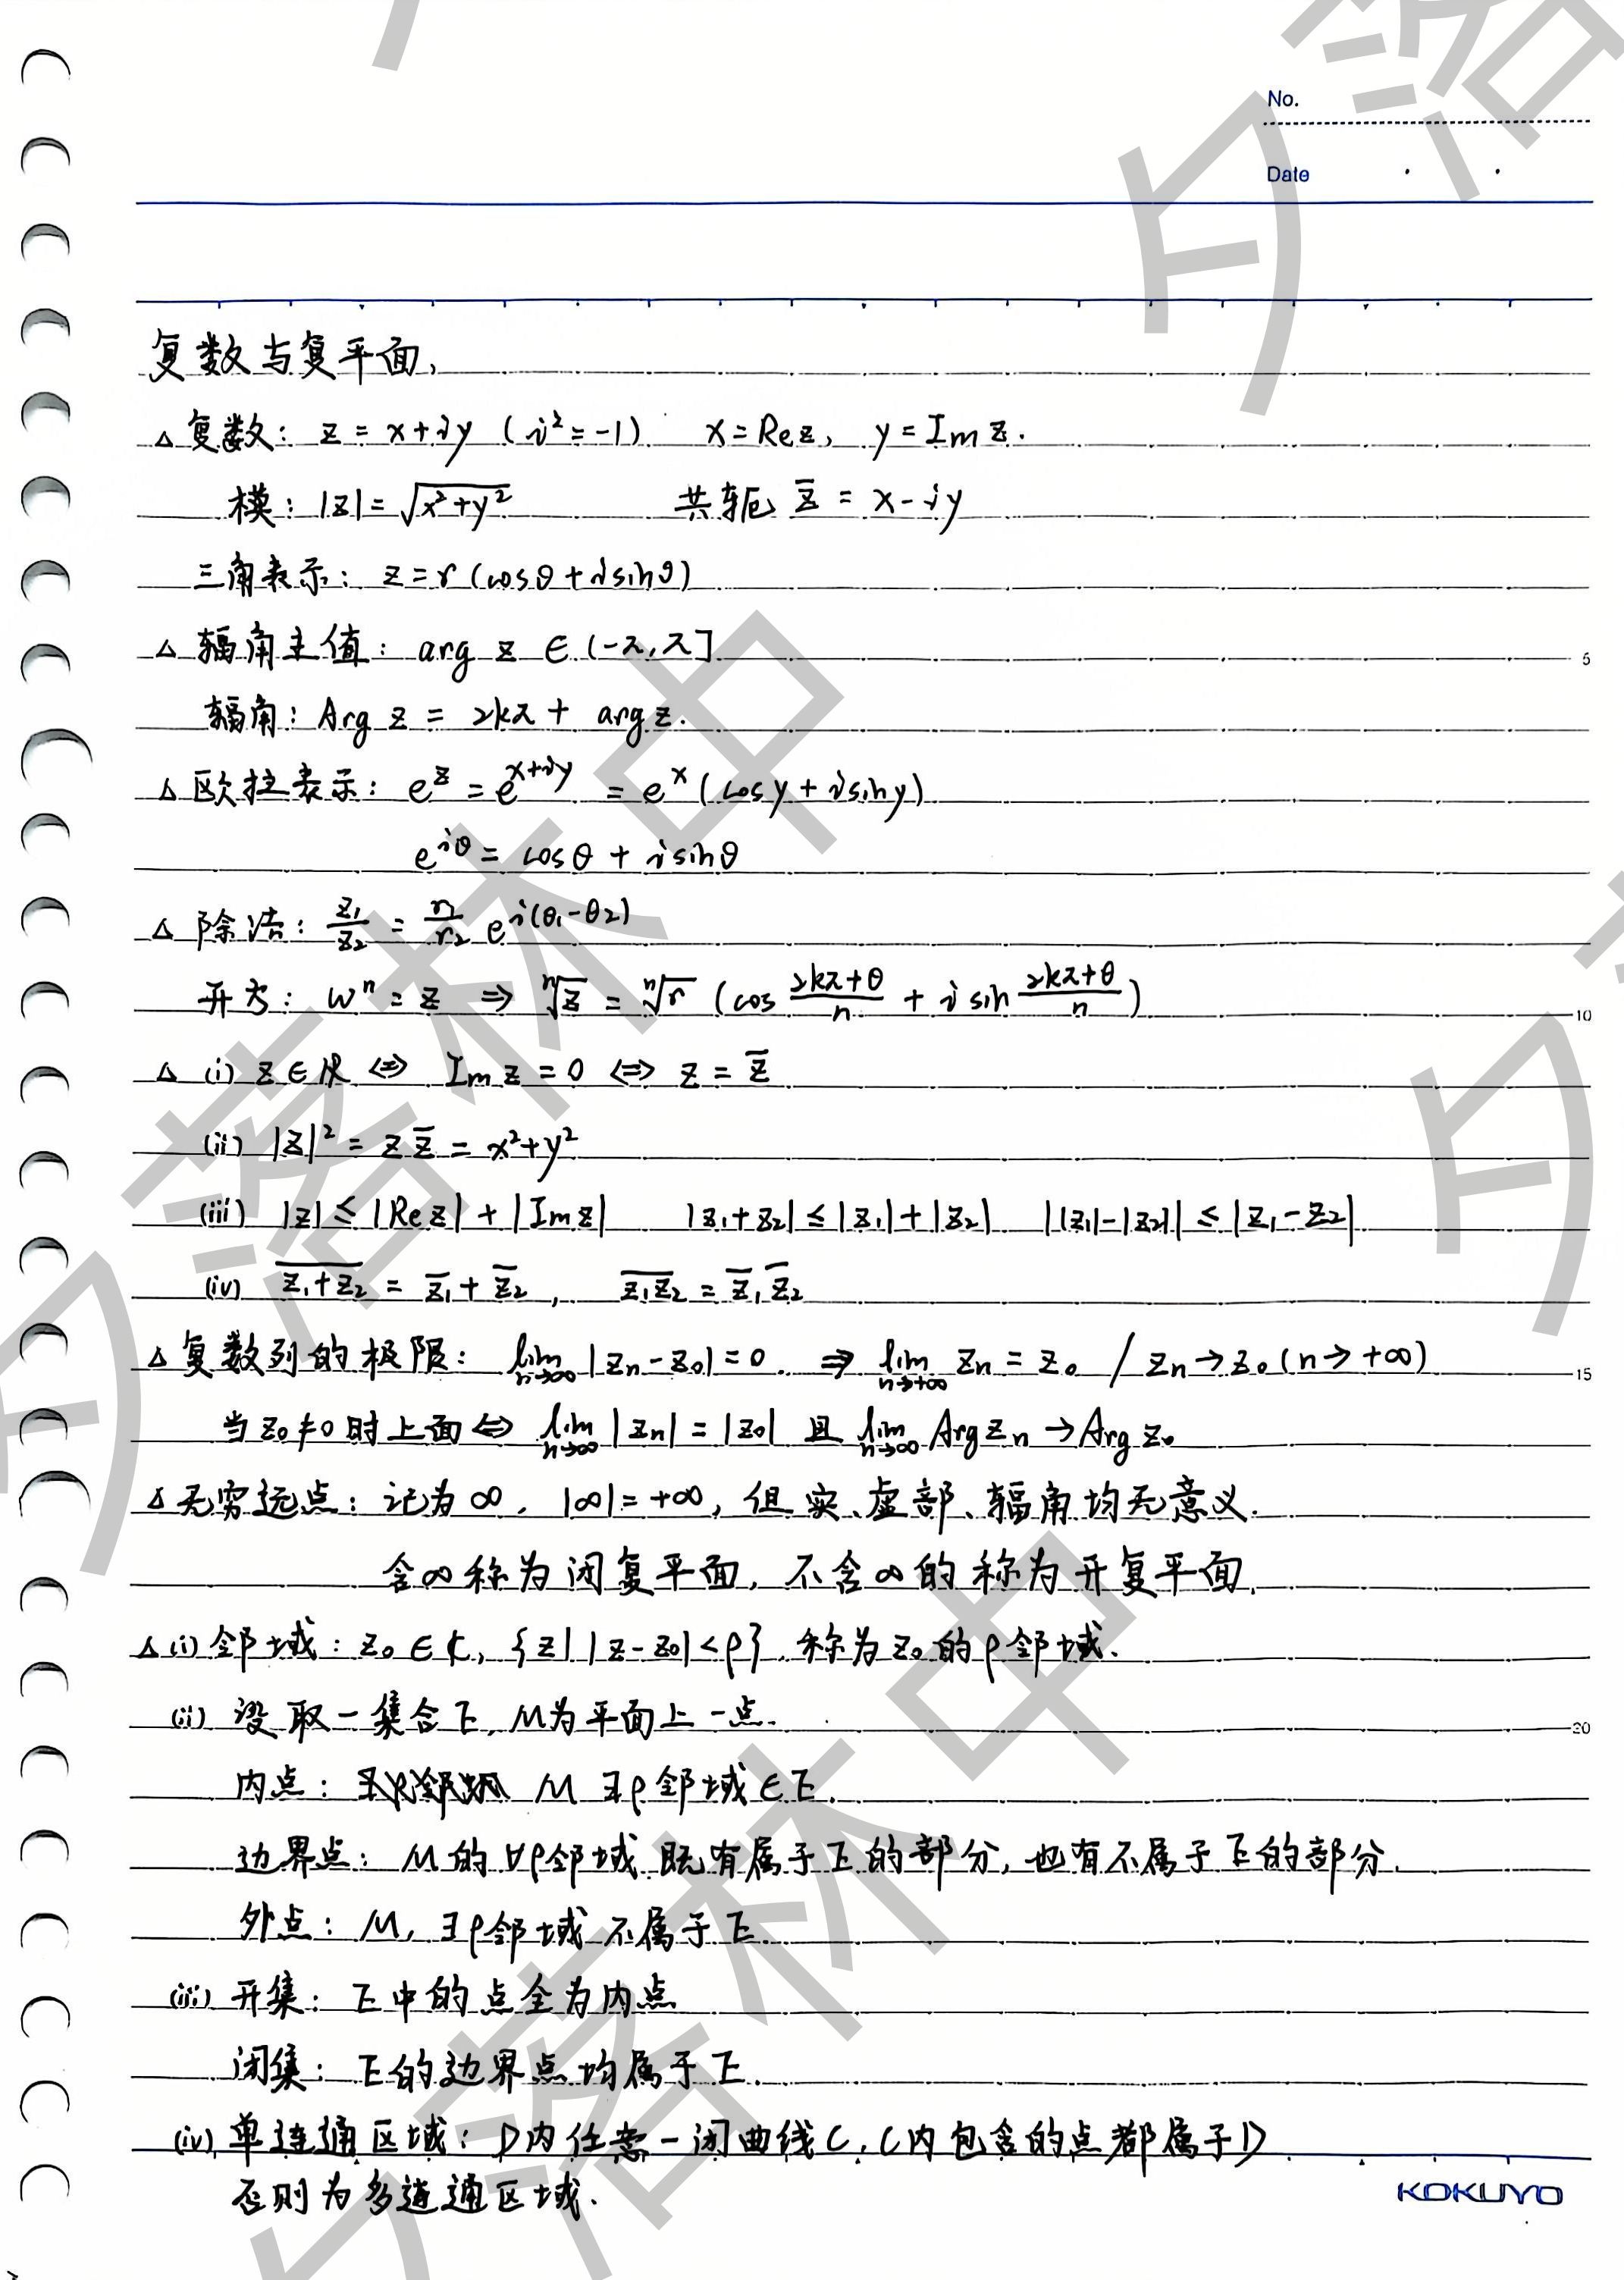 No.
Date
复数与复平面、
△ 复数: z = x+iy (i²=-1) x=Rez, y=Imz.
模: |z|=√(x²+y²) 共轭 z̅ = x-iy
三角表示: z=r(cosθ+isinθ)
△ 辐角主值: arg z ∈ (-π,π]
5
辐角: Arg z = 2kπ + arg z.
△ 欧拉表示: e^z = e^(x+iy) = e^x (cosy+isiny)
e^(iθ) = cosθ + isinθ
△ 除法: z₁/z₂ = r₁/r₂ e^(i(θ₁-θ₂))
开方: wⁿ = z ⇒ ⁿ√z = ⁿ√r (cos (2kπ+θ)/n + i sin (2kπ+θ)/n)
10
△ (i) z∈ℝ ⇔ Imz=0 ⇔ z = z̅
(ii) |z|² = z z̅ = x²+y²
(iii) |z| ≤ |Rez| + |Imz| |z₁+z₂| ≤ |z₁|+|z₂| ||z₁|-|z₂|| ≤ |z₁-z₂|
(iv) \overline{z₁+z₂} = z̅₁ + z̅₂, \overline{z₁z₂} = z̅₁ z̅₂
△ 复数列的极限: lim_{n→∞} |zn-z₀|=0. ⇒ lim_{n→+∞} zn = z₀ / zn→z₀(n→+∞)
15
当z₀≠0时上面⇔ lim_{n→∞} |zn| = |z₀| 且 lim_{n→∞} Argzn → Argz₀
△ 无穷远点: 记为∞, |∞|=+∞, 但实、虚部、辐角均无意义.
含∞称为闭复平面, 不含∞的称为开复平面.
△ (i) 邻域: z₀∈ℂ, {z| |z-z₀|<ρ}, 称为z₀的ρ邻域.
(ii) 设取一集合E, M为平面上一点.
20
内点: M ∃ρ邻域∈E.
边界点: M的∀ρ邻域既有属于E的部分, 也有不属于E的部分.
外点: M, ∃ρ邻域不属于E.
(iii) 开集: E中的点全为内点
闭集: E的边界点均属于E.
(iv) 单连通区域: D内任意一闭曲线C, C内包含的点都属于D
否则为多连通区域.
KOKUYO
夕落林中